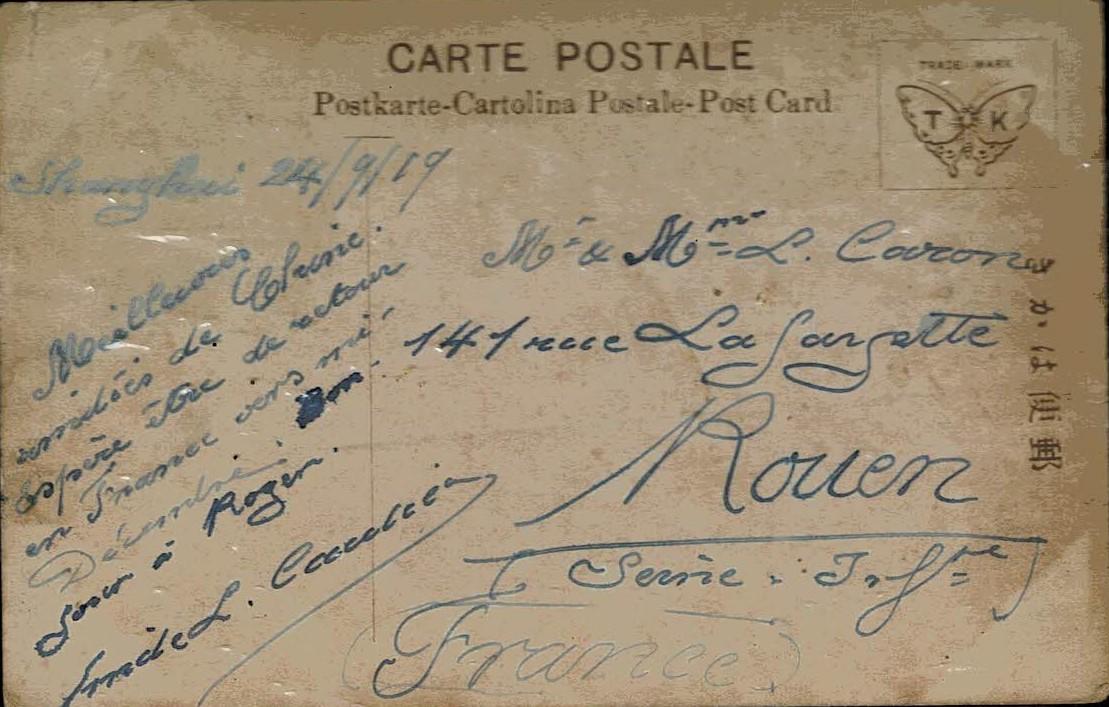 CARTE POSTALE
Postkarte-Cartolina Postale-Post Card
TRADE MARK
T K
Shanghai 24/9/19
Meilleures
amitiés de Chine.
Espère être de retour
en France vers mi-
Décembre. Bon-
jour à Roger.
L.
Mr & Mme L. Caron
141 rue Lafayette
Rouen
(Seine. Infre)
(France)
きかは便郵